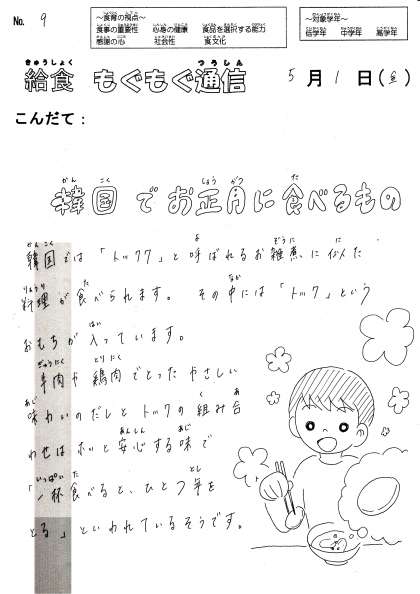 No. 9
～食育の視点～
食事の重要性 心身の健康 食品を選択する能力
感謝の心 社会性 食文化
～対象学年～
低学年 中学年 高学年
給食 もぐもぐ通信 5月1日(金)
こんだて：
韓国でお正月に食べるもの
韓国では「トックク」と呼ばれるお雑煮に似た
料理が食べられます。その中には「トック」という
おもちが入っています。
牛肉や鶏肉でとったやさしい
味わいのだしとトックの組み合
わせはホッと安心する味で
「一杯食べると、ひとつ年を
とる」といわれているそうです。